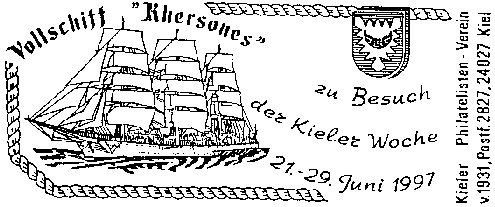 Vollschiff "Khersones"
zu Besuch
der Kieler Woche
21.-29. Juni 1997
Kieler Philatelisten-Verein
v.1931, Postf. 2827, 24027 Kiel